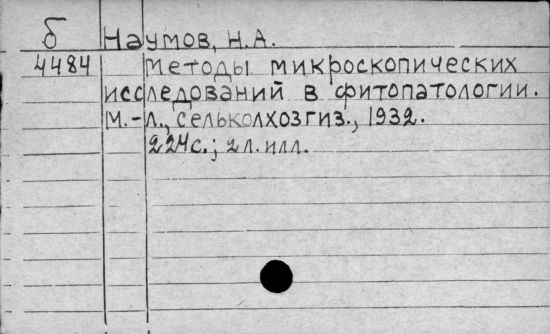 б Наумов, Н.А.
4484 Методы микроскопических
исследований в фитопатологии.
М.-Л., Сельколхозгиз., 1932.
224с.; 2л. илл.